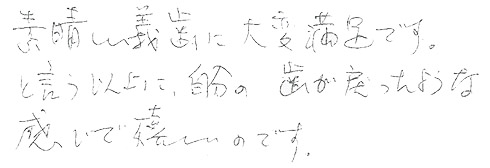 素晴しい義歯に大変満足です。
と言う以上に、自分の歯が戻ったような
感じで嬉しいのです。